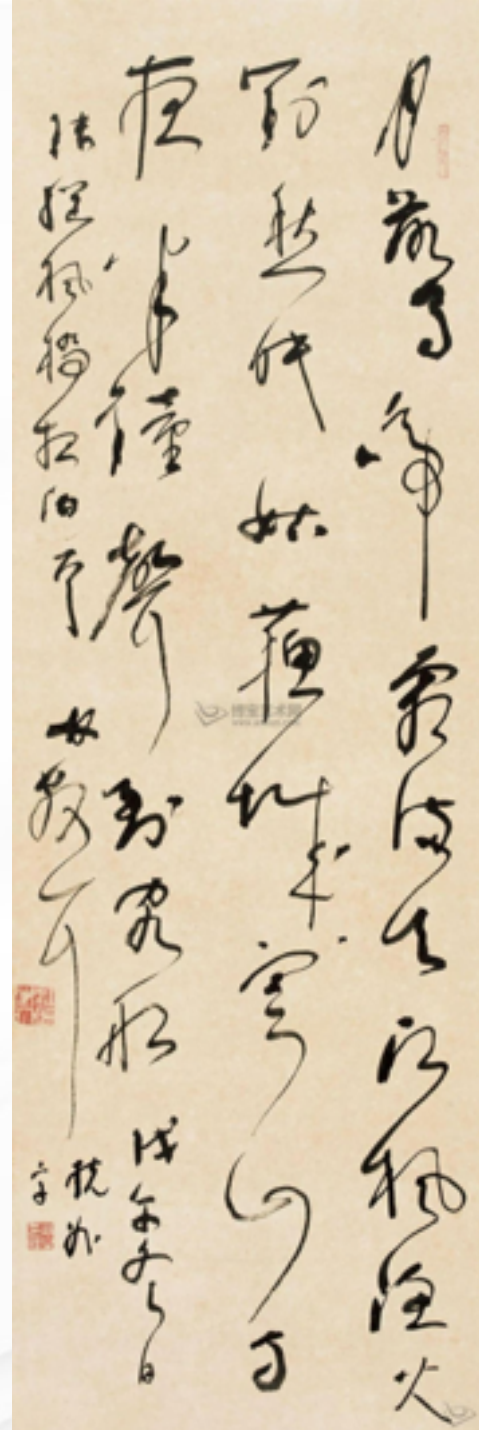 月落烏啼霜滿天江楓漁火
對愁眠姑蘇城寒山寺
夜半鐘聲到客船 戊午冬日
張繼楓橋夜泊 林散耳